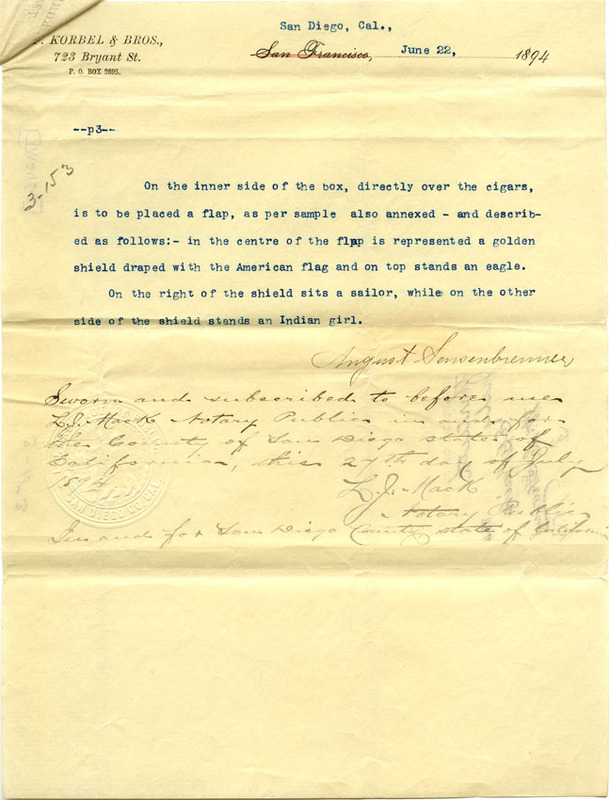 San Diego, Cal.,
F. KORBEL & BROS.,
723 Bryant St.
P. O. BOX 2695.
San Francisco, June 22, 1894
--p3--
3-153
On the inner side of the box, directly over the cigars,
is to be placed a flap, as per sample also annexed - and describ-
ed as follows:- in the centre of the flap is represented a golden
shield draped with the American flag and on top stands an eagle.
On the right of the shield sits a sailor, while on the other
side of the shield stands an Indian girl.
August Sensenbrenner
Sworn and subscribed to before me
L.J. Mack Notary Public in and for
the County of San Diego state of
California, this 27th day of July
1894
L. J. Mack
Notary Public
In and for San Diego County state of California
SAN DIEGO CO. CAL.